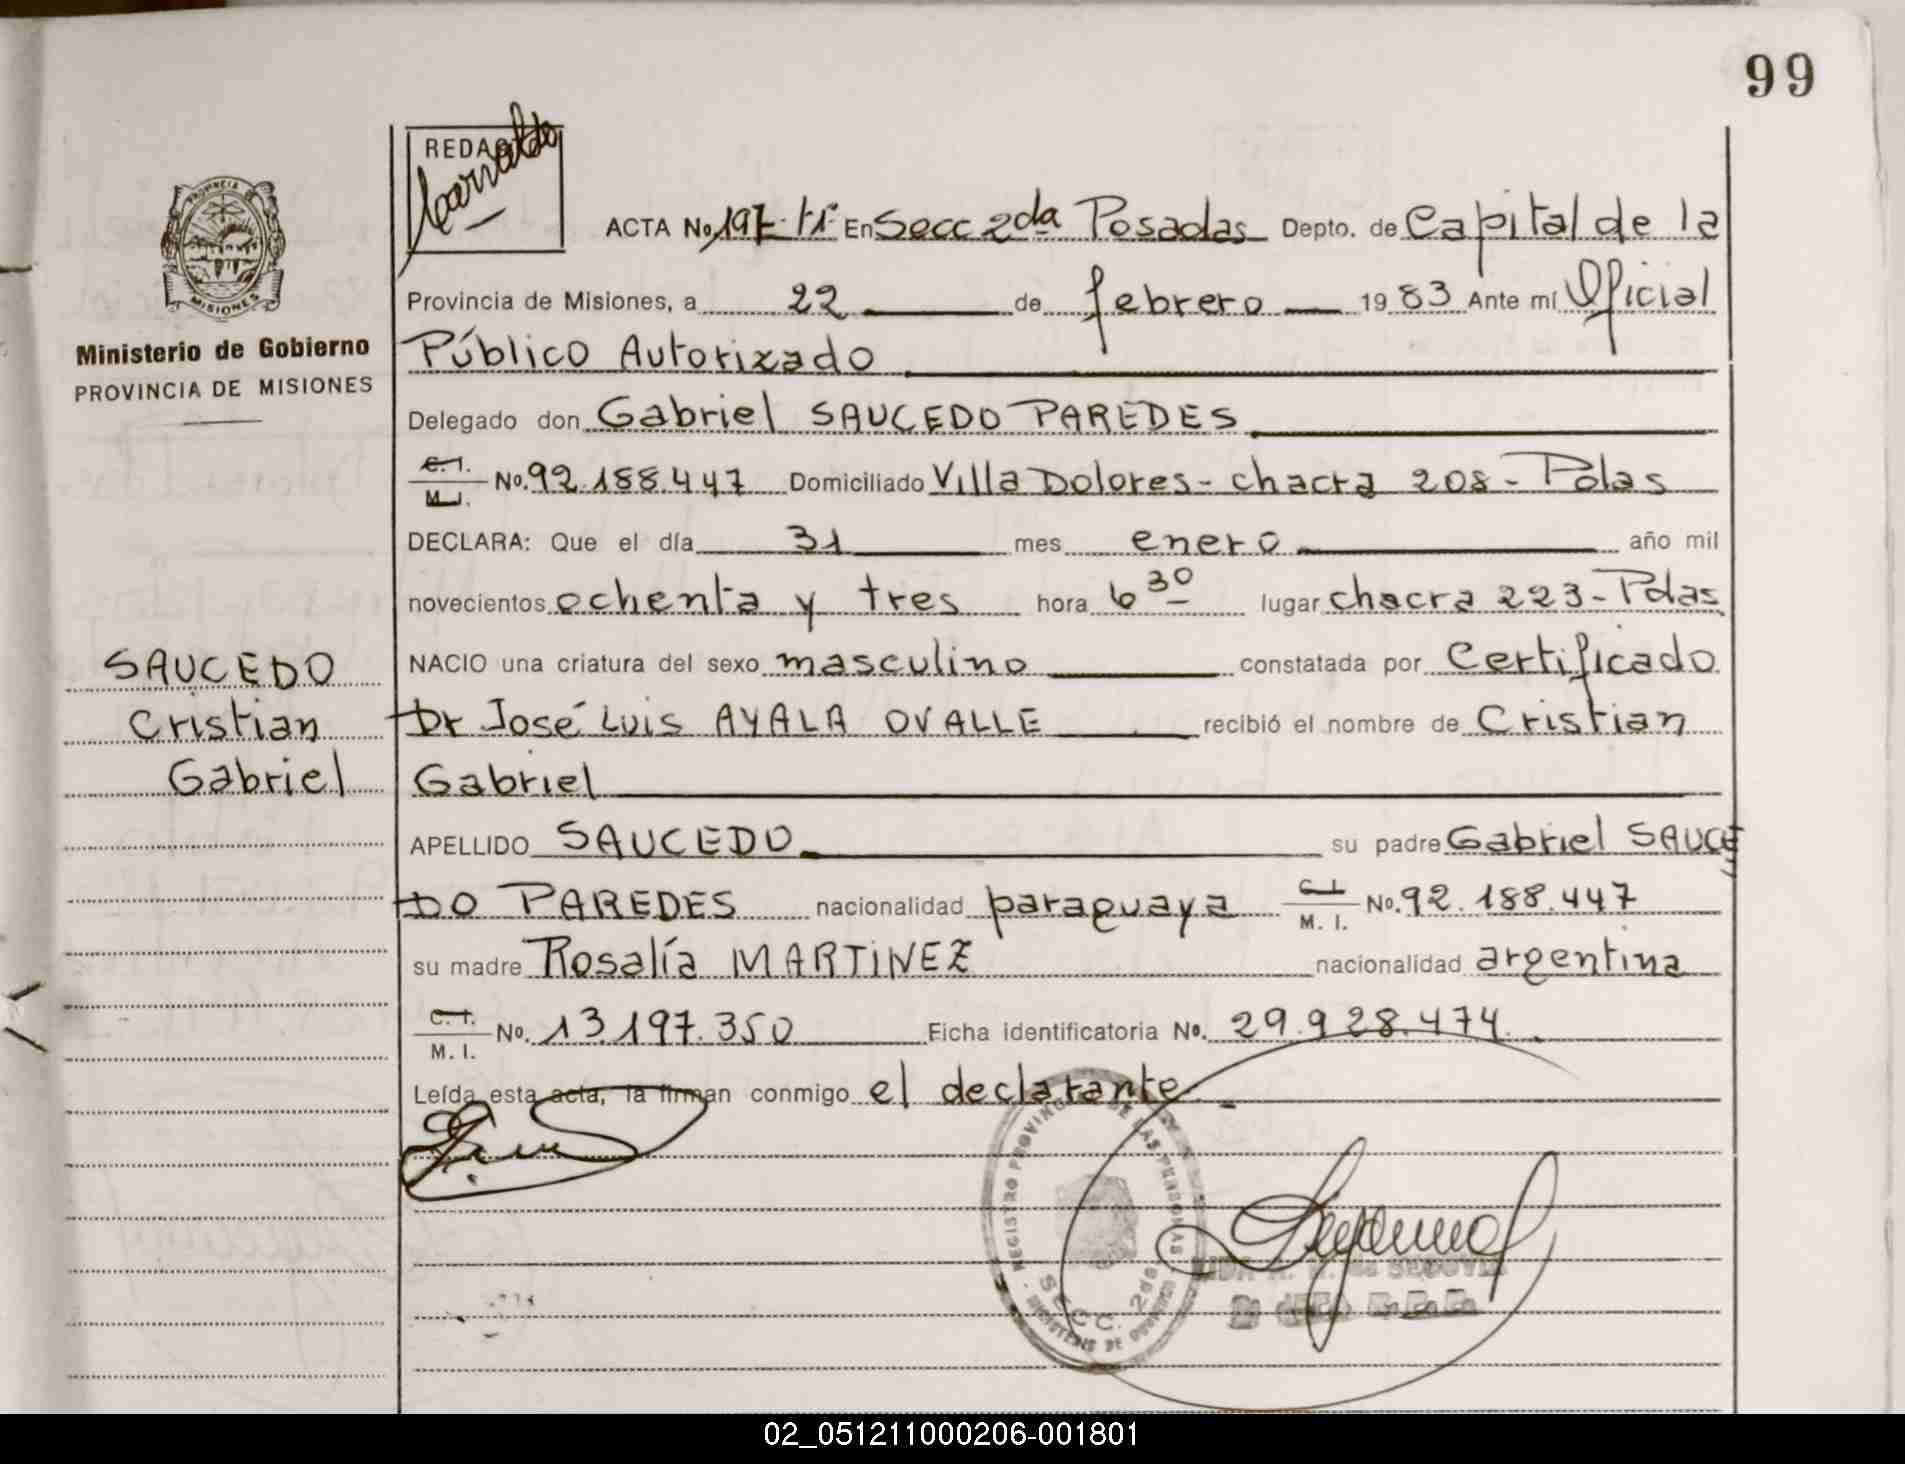 99
REDAC
ACTA No. 197- En Secc 2da Posadas Depto. de Capital de la
PROVINCIA DE
MISIONES
Provincia de Misiones, a 22 de febrero 1983 Ante mí Oficial
Ministerio de Gobierno
PROVINCIA DE MISIONES
Público Autorizado
Delegado don Gabriel SAUCEDO PAREDES
C.I.
M.I. No. 92.188.447 Domiciliado Villa Dolores - chacra 208 - Pdas
DECLARA: Que el día 31 mes enero año mil
novecientos ochenta y tres hora 6 30 lugar chacra 223 - Pdas
SAUCEDO
Cristian
Gabriel
NACIO una criatura del sexo masculino constatada por Certificado
Dr José Luis AYALA OVALLE recibió el nombre de Cristian
Gabriel
APELLIDO SAUCEDO su padre Gabriel SAUCE
DO PAREDES nacionalidad paraguaya C.I. M. I. No. 92.188.447
su madre Rosalía MARTINEZ nacionalidad argentina
C.I. M. I. No. 13.197.350 Ficha identificatoria No. 29.928.474
Leída esta acta, la firman conmigo el declarante
REGISTRO PROVINCIAL DE LAS PERSONAS
SECC. 2da
MINISTERIO DE GOBIERNO
02_051211000206-001801